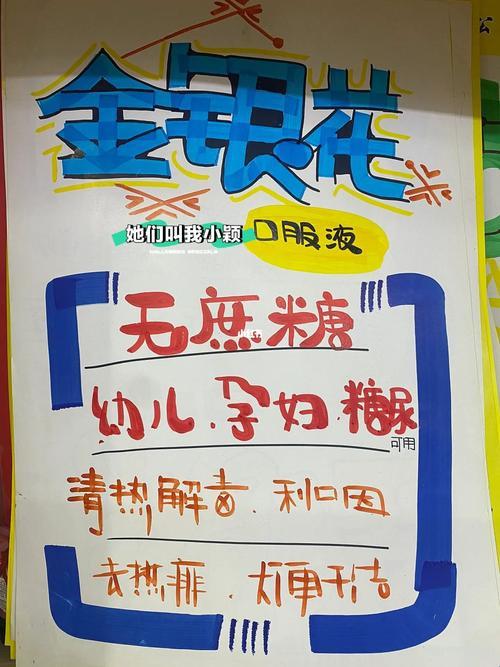 金银花
她们叫我小颖
口服液
无蔗糖
小红书
幼儿.孕妇.糖尿
可用
清热解毒.利口因
去热痱.大便干洁